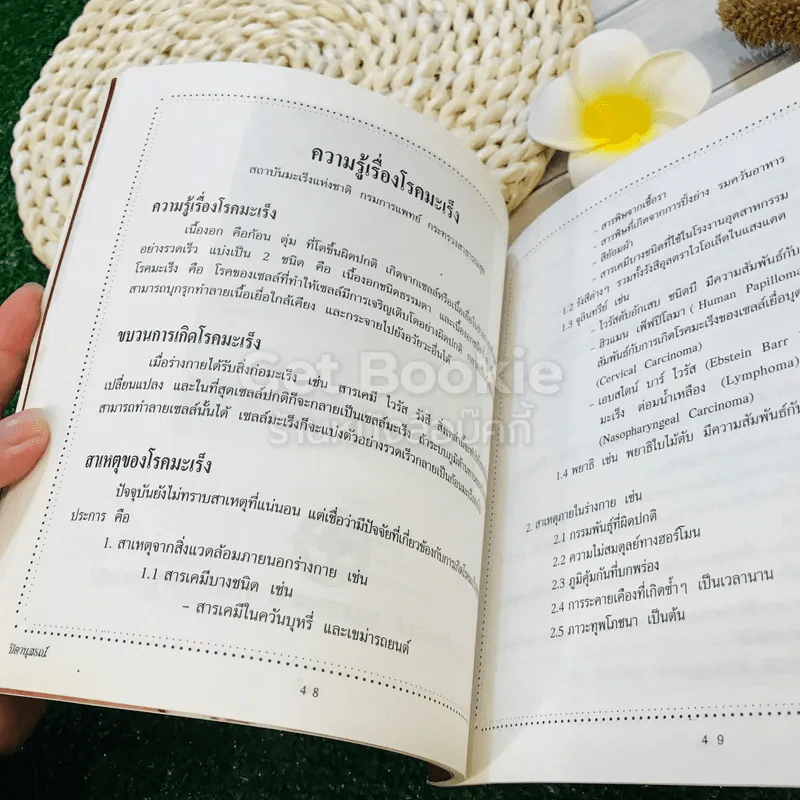 ความรู้เรื่องโรคมะเร็ง
สถาบันมะเร็งแห่งชาติ กรมการแพทย์ กระทรวงสาธารณสุข
ความรู้เรื่องโรคมะเร็ง
เนื้องอก คือก้อน ตุ่ม ที่โตขึ้นผิดปกติ เกิดจากเซลล์หรือเนื้อเยื่อ
อย่างรวดเร็ว แบ่งเป็น 2 ชนิด คือ เนื้องอกชนิดธรรมดา และเนื้องอกชนิด
โรคมะเร็ง คือ โรคของเซลล์ที่ทำให้เซลล์มีการเจริญเติบโตอย่างผิดปกติ
สามารถบุกรุกทำลายเนื้อเยื่อใกล้เคียง และกระจายไปยังอวัยวะอื่นได้
ขบวนการเกิดโรคมะเร็ง
เมื่อร่างกายได้รับสิ่งก่อมะเร็ง เช่น สารเคมี ไวรัส รังสี
เปลี่ยนแปลง และในที่สุดเซลล์ปกติก็จะกลายเป็นเซลล์มะเร็ง ถ้าระบบภูมิต้านทาน
สามารถทำลายเซลล์นั้นได้ เซลล์มะเร็งก็จะแบ่งตัวอย่างรวดเร็วกลายเป็นก้อนมะเร็ง
สาเหตุของโรคมะเร็ง
ปัจจุบันยังไม่ทราบสาเหตุที่แน่นอน แต่เชื่อว่ามีปัจจัยที่เกี่ยวข้องกับการเกิดโรค
ประการ คือ
1. สาเหตุจากสิ่งแวดล้อมภายนอกร่างกาย เช่น
1.1 สารเคมีบางชนิด เช่น
- สารเคมีในควันบุหรี่ และเขม่ารถยนต์
ปิตานุสรณ์
48
- สารพิษจากเชื้อรา
- สารพิษที่เกิดจากการปิ้งย่าง รมควันอาหาร
- สีย้อมผ้า
- สารเคมีบางชนิดที่ใช้ในโรงงานอุตสาหกรรม
1.2 รังสีต่างๆ รวมทั้งรังสีอุลตราไวโอเล็ตในแสงแดด
1.3 จุลินทรีย์ เช่น
- ไวรัสตับอักเสบ ชนิดบี มีความสัมพันธ์กับ
- ฮิวแมน เพ็พปิโลมา (Human Papilloma
สัมพันธ์กับการเกิดโรคมะเร็งของเซลล์เยื่อบุ
(Cervical Carcinoma)
- เอบสไตน์ บาร์ ไวรัส (Ebstein Barr
มะเร็ง ต่อมน้ำเหลือง (Lymphoma)
(Nasopharyngeal Carcinoma)
1.4 พยาธิ เช่น พยาธิใบไม้ตับ มีความสัมพันธ์กับ
2. สาเหตุภายในร่างกาย เช่น
2.1 กรรมพันธุ์ที่ผิดปกติ
2.2 ความไม่สมดุลย์ทางฮอร์โมน
2.3 ภูมิคุ้มกันที่บกพร่อง
2.4 การระคายเคืองที่เกิดซ้ำๆ เป็นเวลานาน
2.5 ภาวะทุพโภชนา เป็นต้น
49
Get Bookie
ร้านหนังสือบุ๊คกี้